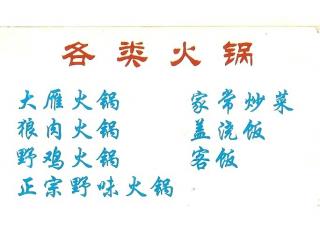 各类火锅
大雁火锅
狼肉火锅
野鸡火锅
正宗野味火锅
家常炒菜
盖浇饭
客饭